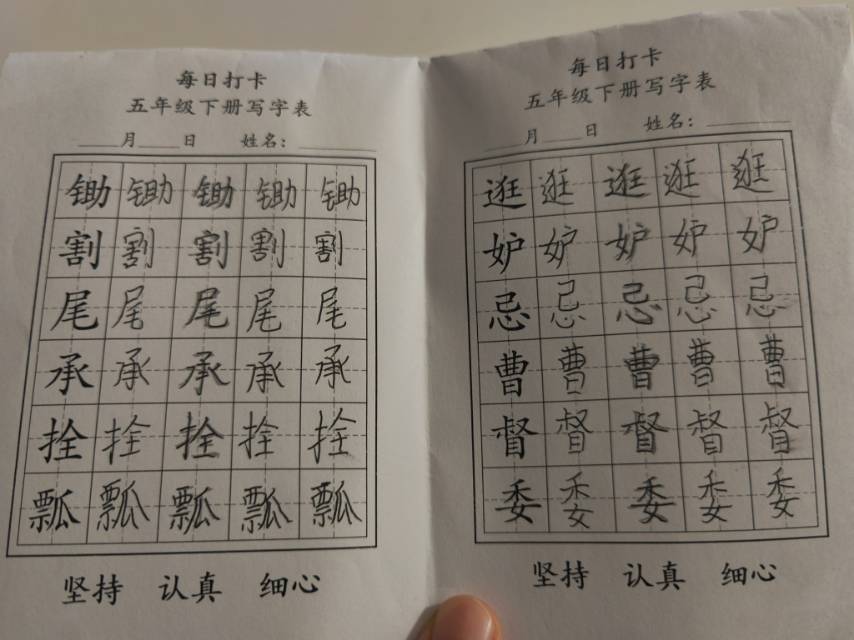 每日打卡
五年级下册写字表
月 日 姓名：
锄 锄 锄 锄 锄
割 割 割 割 割
尾 尾 尾 尾 尾
承 承 承 承 承
拴 拴 拴 拴 拴
瓢 瓢 瓢 瓢 瓢
坚持 认真 细心
每日打卡
五年级下册写字表
月 日 姓名：
逛 逛 逛 逛 逛
妒 妒 妒 妒 妒
忌 忌 忌 忌 忌
曹 曹 曹 曹 曹
督 督 督 督 督
委 委 委 委 委
坚持 认真 细心